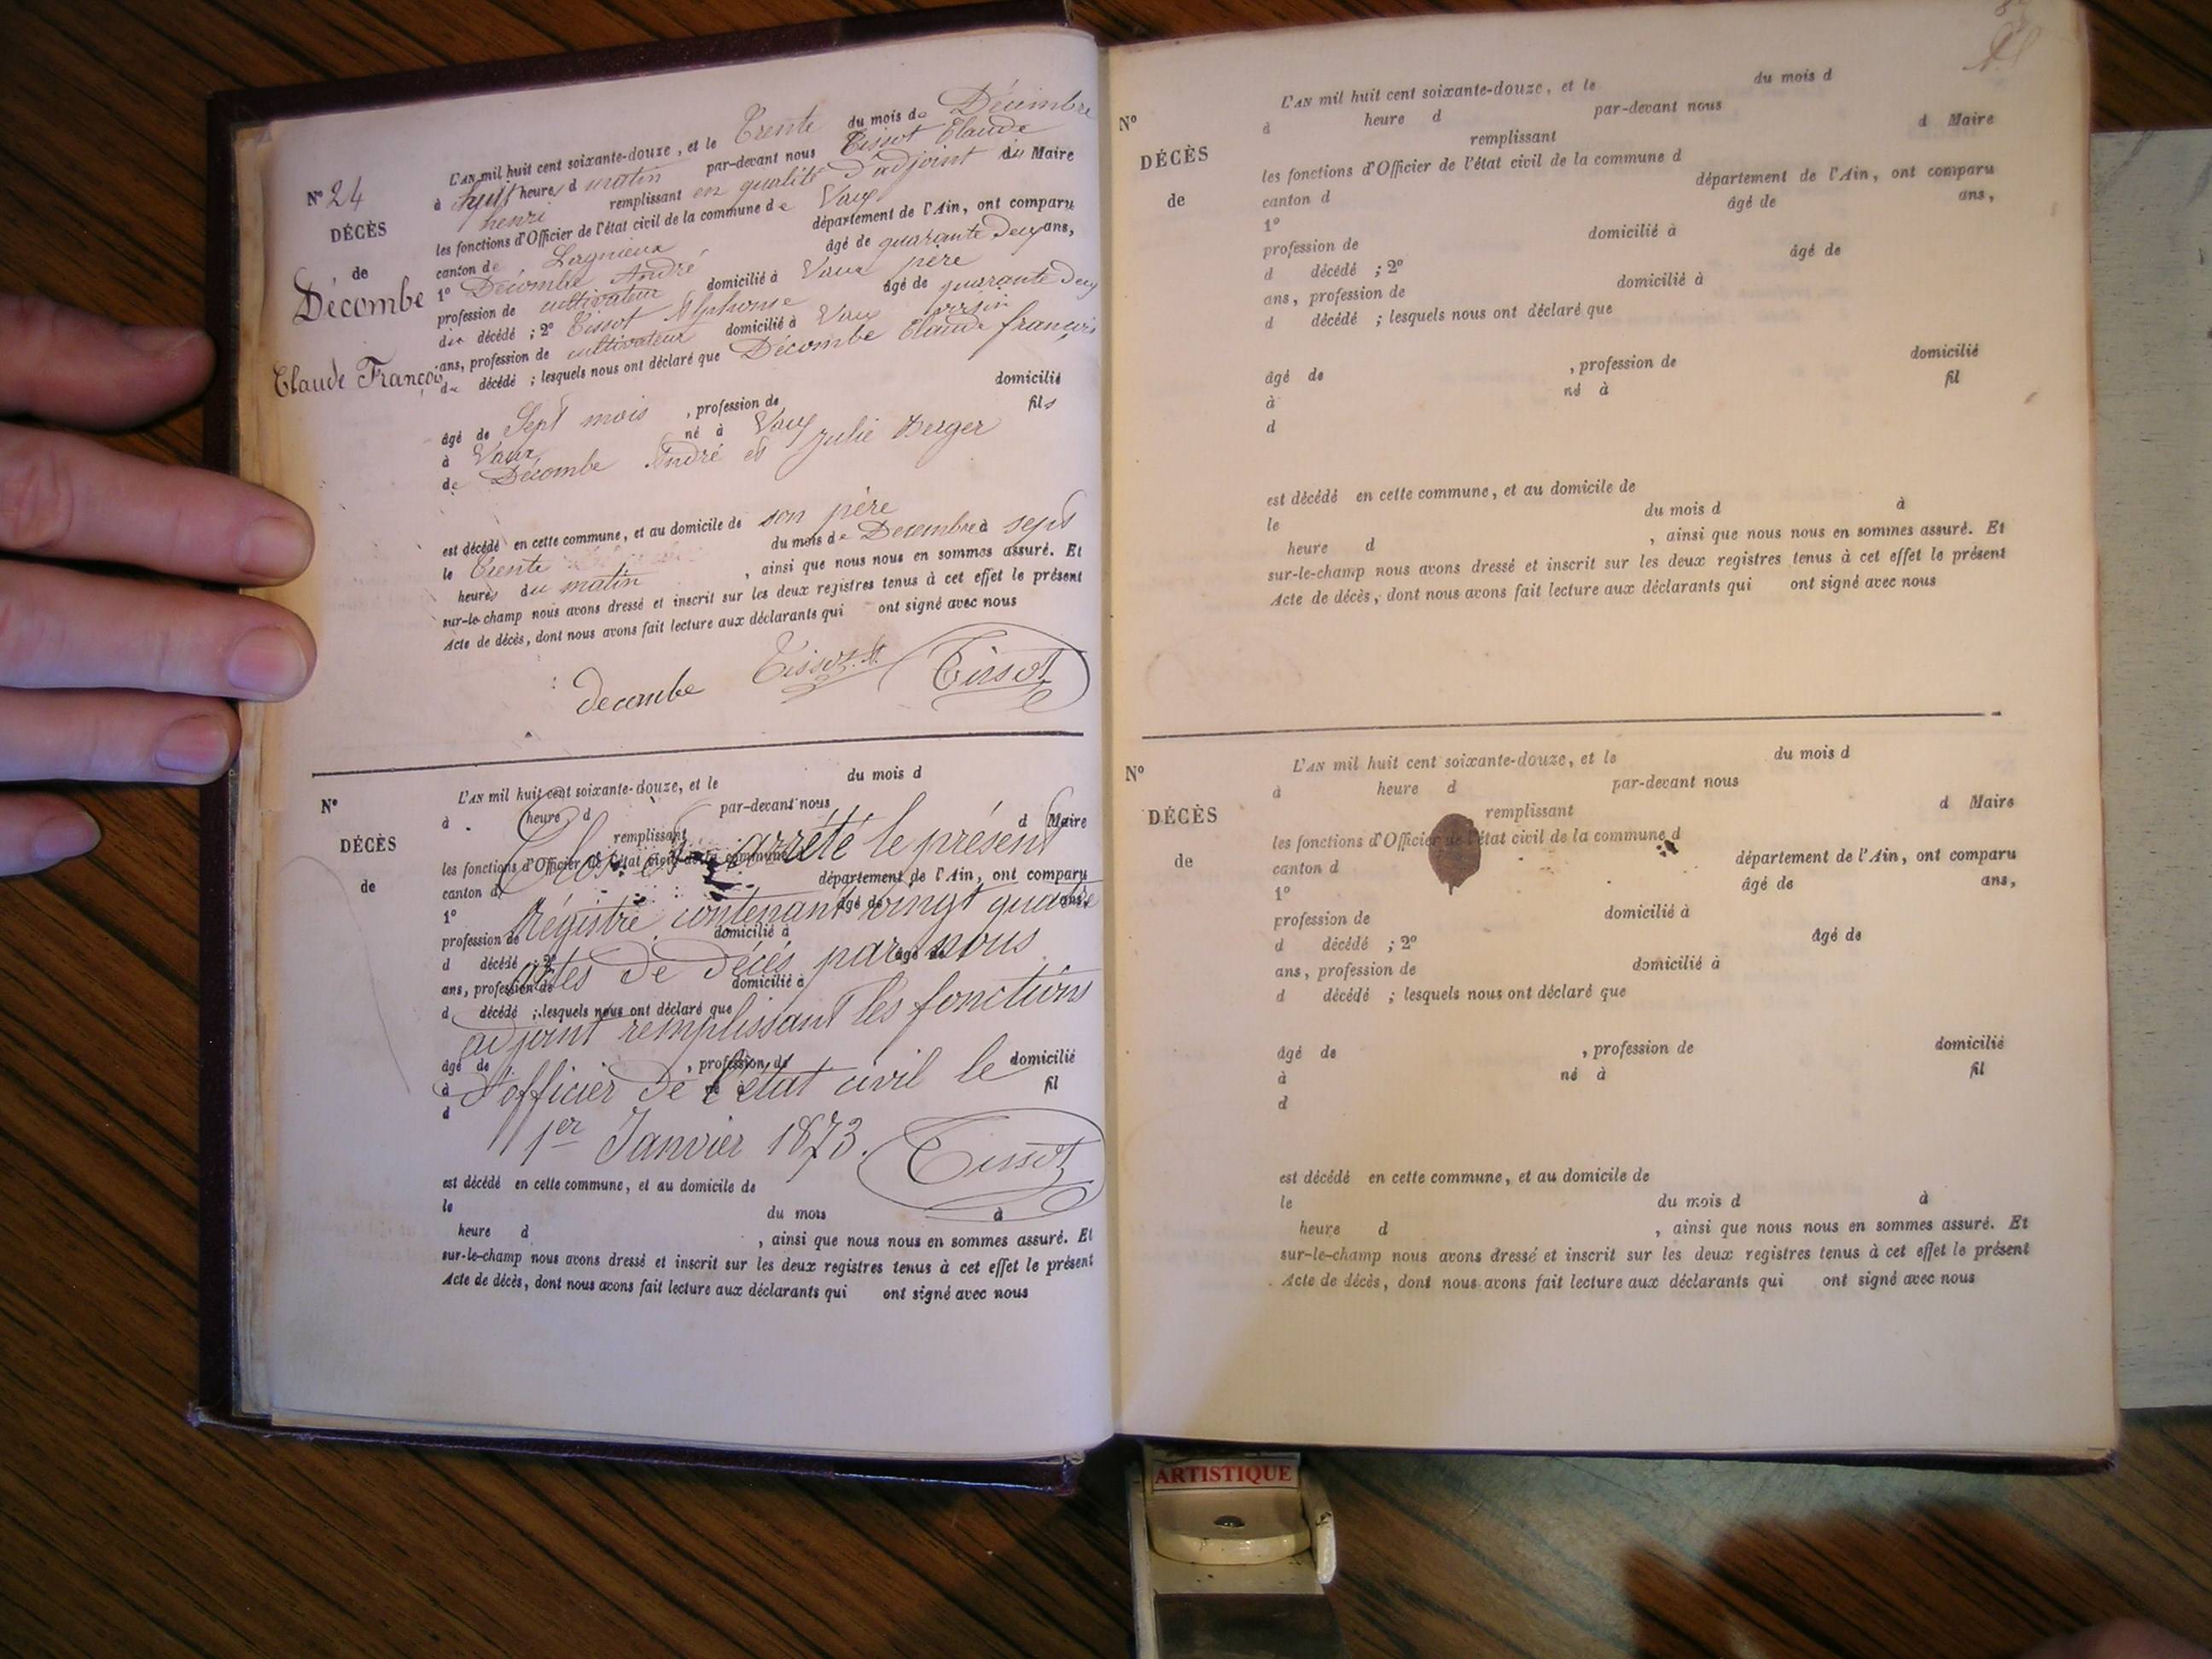 N° 24
DÉCÈS
de
Décombe
Claude François
L'AN mil huit cent soixante-douze, et le Trente du mois de Décembre
à huit heure d matin par-devant nous Tissot Claude
henri remplissant en qualité d'adjoint du Maire
les fonctions d'Officier de l'état civil de la commune de Vaux
canton de Lagnieux département de l'Ain, ont comparu
1° Décombe André âgé de quarante Deux ans,
profession de cultivateur domicilié à Vaux père
du décédé ; 2° Tissot Alphonse âgé de quarante Deux
ans, profession de cultivateur domicilié à Vaux
du décédé ; lesquels nous ont déclaré que Décombe Claude françois
âgé de Sept mois , profession de domicilié
à Vaux né à Vaux fils
de Décombe André et Julie Berger
est décédé en cette commune, et au domicile de son père
le Trente du mois de Decembre à sept
heures du matin , ainsi que nous nous en sommes assuré. Et
sur-le-champ nous avons dressé et inscrit sur les deux registres tenus à cet effet le présent
Acte de décès, dont nous avons fait lecture aux déclarants qui ont signé avec nous
decombe Tissot A Tissot
N°
DÉCÈS
de
L'AN mil huit cent soixante-douze, et le du mois d
à heure d par-devant nous
remplissant d Maire
les fonctions d'Officier de l'état civil de la commune
canton d département de l'Ain, ont comparu
1° âgé de ans,
profession de domicilié à
d décédé ; 2° âgé de
ans, profession de domicilié à
d décédé ; lesquels nous ont déclaré que
âgé de , profession de domicilié
à né à fil
d
Clos et arrêté le présent
Régistre contenant vingt quatre
actes de décès par nous
adjoint remplissant les fonctions
d'officier de l'état civil le
1er Janvier 1873. Tissot
est décédé en cette commune, et au domicile de
le du mois à
heure d , ainsi que nous nous en sommes assuré. Et
sur-le-champ nous avons dressé et inscrit sur les deux registres tenus à cet effet le présent
Acte de décès, dont nous avons fait lecture aux déclarants qui ont signé avec nous
N°
DÉCÈS
de
L'AN mil huit cent soixante-douze, et le du mois d
à heure d par-devant nous
remplissant d Maire
les fonctions d'Officier de l'état civil de la commune d
canton d département de l'Ain, ont comparu
1° âgé de ans,
profession de domicilié à
d décédé ; 2° âgé de
ans, profession de domicilié à
d décédé ; lesquels nous ont déclaré que
âgé de , profession de domicilié
à né à fil
d
est décédé en cette commune, et au domicile de
le du mois d à
heure d , ainsi que nous nous en sommes assuré. Et
sur-le-champ nous avons dressé et inscrit sur les deux registres tenus à cet effet le présent
Acte de décès, dont nous avons fait lecture aux déclarants qui ont signé avec nous
N°
DÉCÈS
de
L'AN mil huit cent soixante-douze, et le du mois d
à heure d par-devant nous
remplissant d Maire
les fonctions d'Officier de l'état civil de la commune d
canton d département de l'Ain, ont comparu
1° âgé de ans,
profession de domicilié à
d décédé ; 2° âgé de
ans, profession de domicilié à
d décédé ; lesquels nous ont déclaré que
âgé de , profession de domicilié
à né à fil
d
est décédé en cette commune, et au domicile de
le du mois d à
heure d , ainsi que nous nous en sommes assuré. Et
sur-le-champ nous avons dressé et inscrit sur les deux registres tenus à cet effet le présent
Acte de décès, dont nous avons fait lecture aux déclarants qui ont signé avec nous
ARTISTIQUE